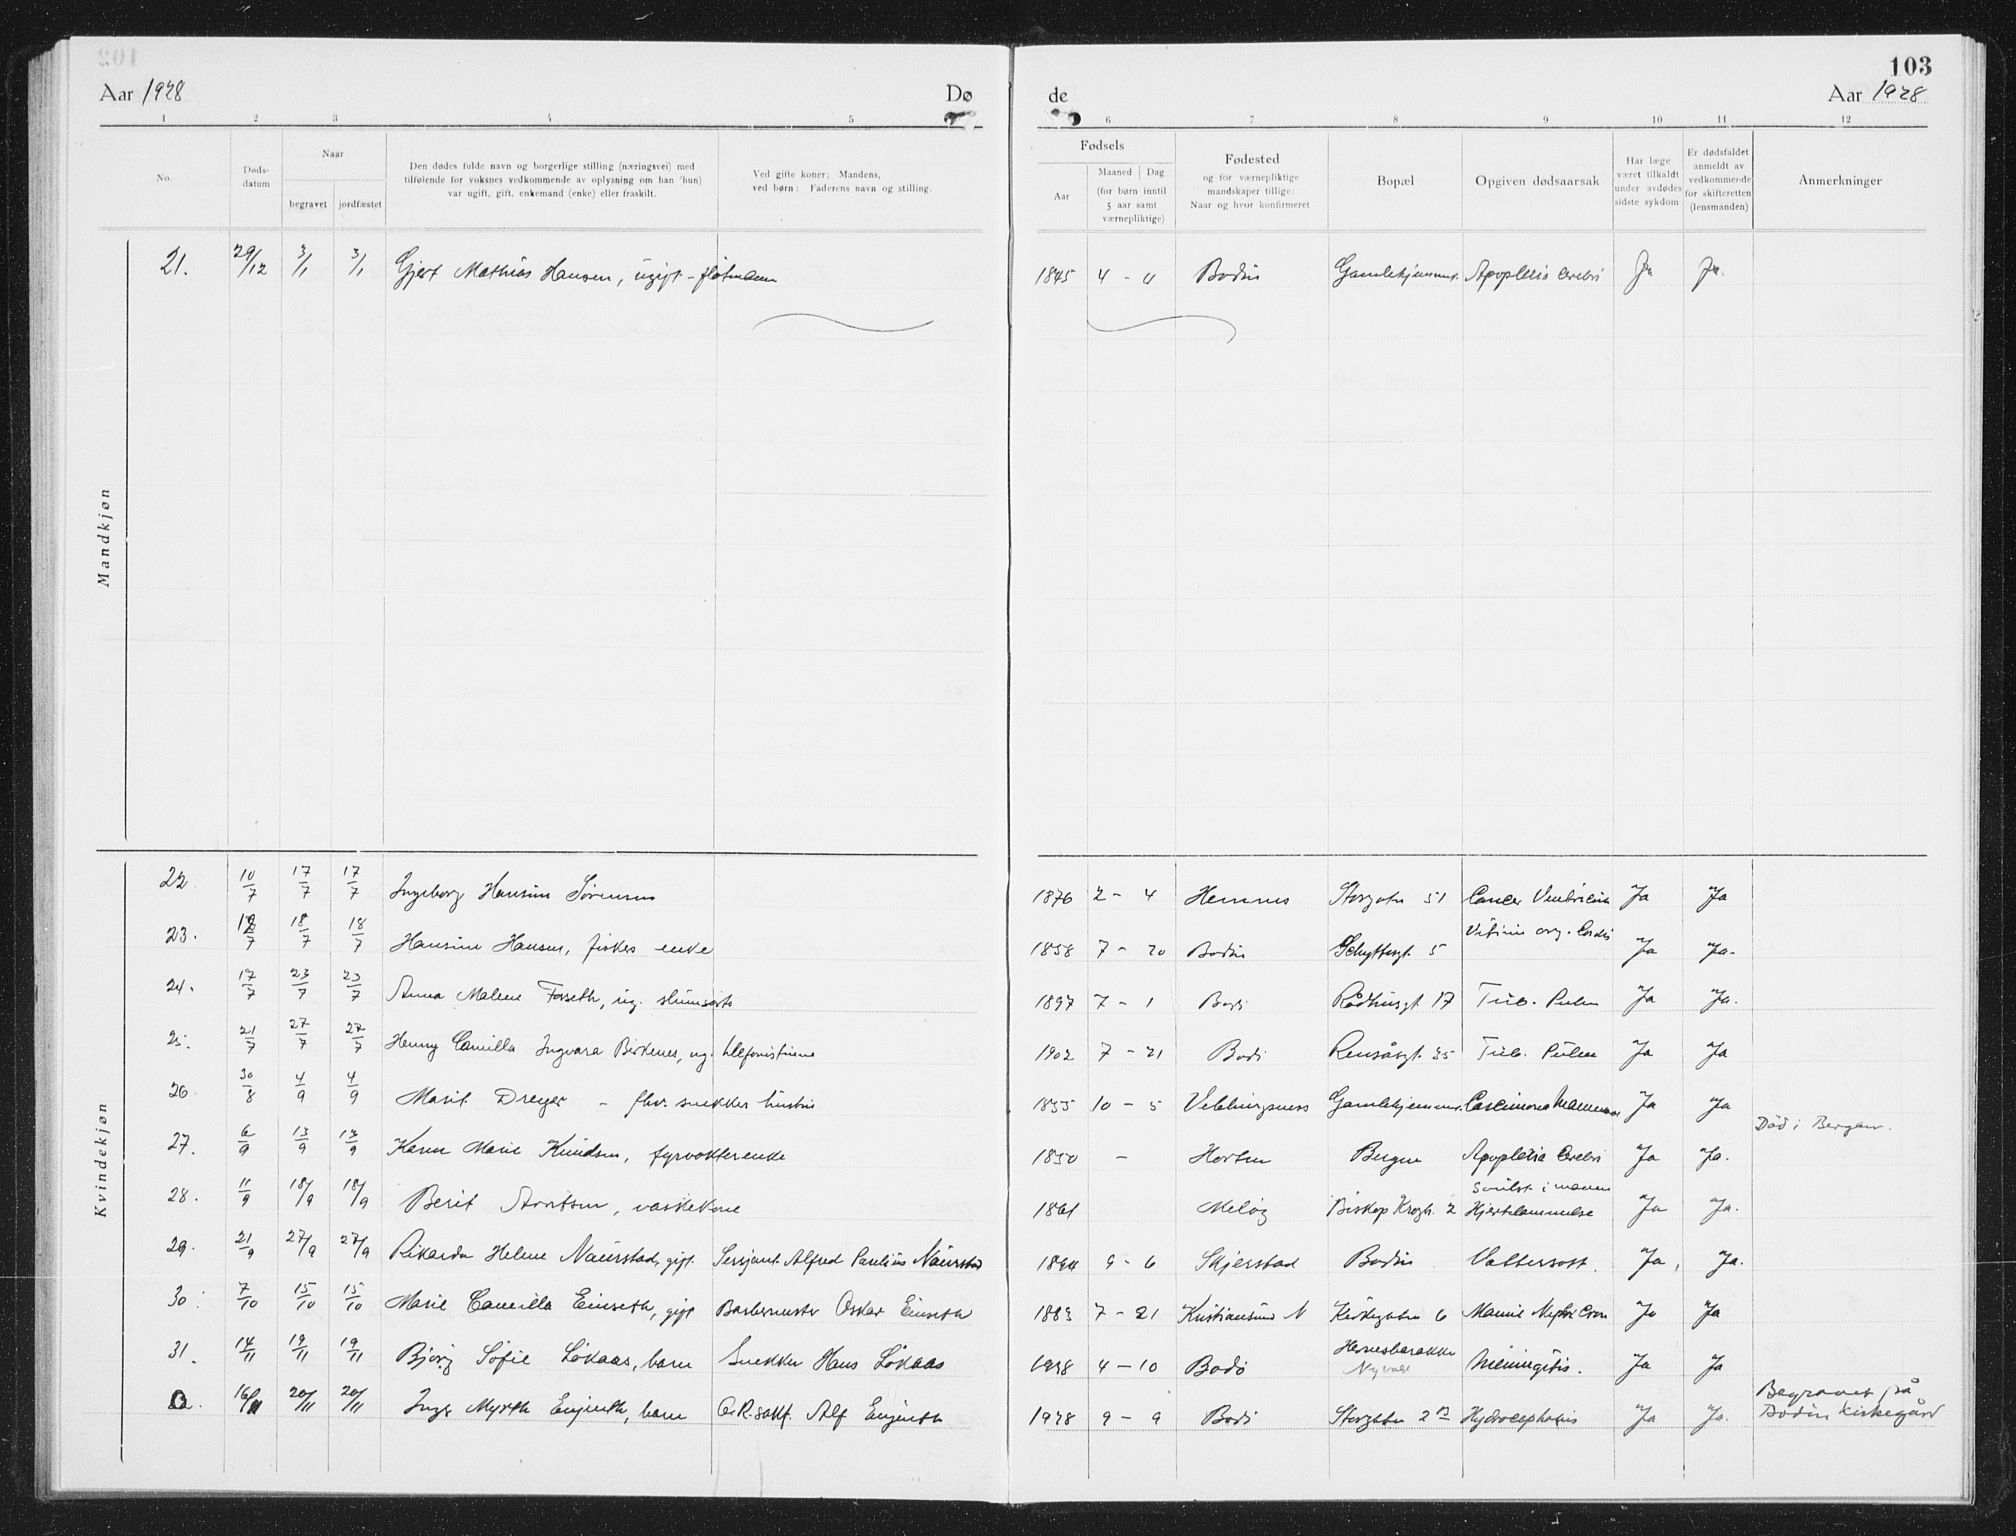 103
Aar 1928 Dø de Aar 1928
1 2 3 4 5 6 7 8 9 10 11 12
No.
Døds-
datum
Naar
begravet jordfæstet
Den dødes fulde navn og borgerlige stilling (næringsvei) med
tilføiende for voksnes vedkommende av oplysning om han (hun)
var ugift, gift, enkemand (enke) eller fraskilt.
Ved gifte koner; Mandens,
ved børn: Faderens navn og stilling.
Fødsels
Aar
Maaned Dag
(for børn inntil
5 aar samt
værnepliktige)
Fødested
og for værnepliktige
mandskaper tillige:
Naar og hvor konfirmeret
Bopæl
Opgiven dødsaarsak
Har læge
været tilkaldt
under avdødes
sidste sykdom
Er dødsfaldet
anmeldt av
vedkommende
for skifteretten
(lensmanden)
Anmerkninger
Mandkjøn
21. 29/12 3/1 3/1 Gjert Mathias Hansen, ugift - 1845 4 - 11 Bodin Gamlehjemmet. Apoplexia Cerebri Ja Ja.
Kvindekjøn
22. 10/7 17/7 17/7 Ingeborg Hansine Sørensen 1876 2 - 4 Hemnes Storgatn 51 Cancer Ventriculi Ja Ja
23. 12/7 18/7 18/7 Hansine Hansen, fiskers enke 1858 7 - 20 Bodin Schyttesgt. 5 Vitium org. Cordis Ja Ja.
24. 17/7 23/7 23/7 Anna Malene Forseth, ug. 1897 7 - 1 Bodø Rådhusgt. 17 Tub. Pulm Ja Ja.
25. 21/7 27/7 27/7 Henny Camilla Ingvara Birkenes, ug. telefonistinne 1902 7 - 21 Bodø Rensåsgt. 35 Tub. Pulm Ja Ja
26. 30/8 4/9 4/9 Marit Dreyer - fhv. snekker hustru 1855 10 - 5 Veblungsness Gamlehjemmet. Carcinoma Mammae Ja Ja
27. 6/9 13/9 13/9 Karen Marie Knudsen, fyrvokterenke 1850 - Horten Bergen Apoplexia Cerebri Ja Ja. Död i Bergen.
28. 11/9 18/9 18/9 Berit Arntsen, vaskekone 1861 Meløy Biskop Kroghs. 2 Svulst i maven Hjertelammelse Ja Ja.
29. 21/9 27/9 27/9 Rikarda Helene Naurstad, gift. Sersjant Alfred Paulius Naurstad 1894 9 - 6 Skjerstad Bodin Vattersott. Ja, Ja.
30. 7/10 15/10 15/10 Marie Camilla Einseth, gift Barbermester Oskar Einseth 1883 7 - 21 Kristiansund N Kirkegaten 6 Ja Ja
31. 14/11 19/11 19/11 Bjørg Sofie Løkaas, barn Snekker Hans Løkaas 1928 4 - 10 Bodø Havnebarakke Meningitis. Ja Ja
16/11 20/11 20/11 Inger Myrth Engseth, barn O.R.sakf. Alf Engseth 1928 9 - 9 Bodø Storgaten 2 B Hydrocephalus Ja Ja. Begravet på
Bodin kirkegård